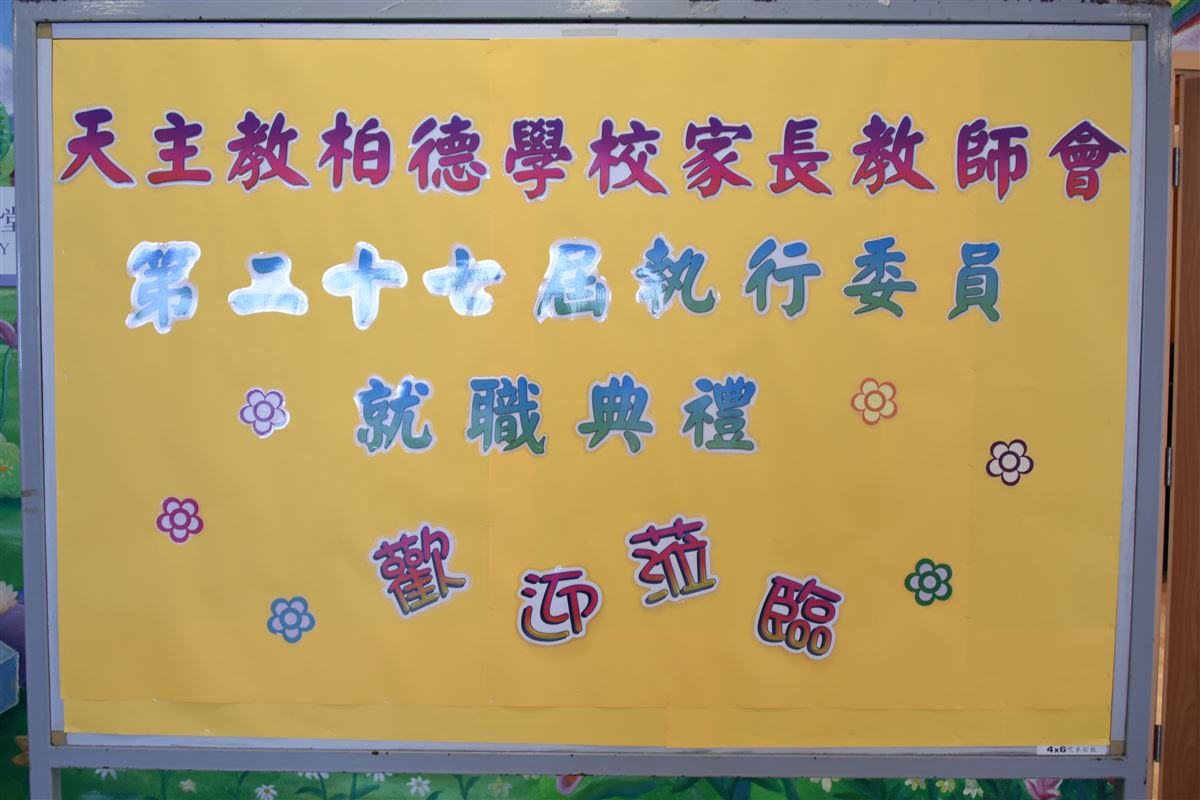 天主教柏德學校家長教師會
第二十七屆執行委員
就職典禮
歡迎蒞臨
4x6呎水松板
堂
Y